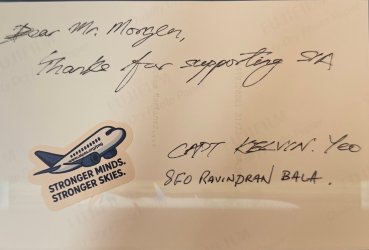 Dear Mr. Morgen,
Thanks for supporting SIA
STRONGER MINDS.
STRONGER SKIES.
CAPT KELVIN. YEO
SFO RAVINDRAN BALA.